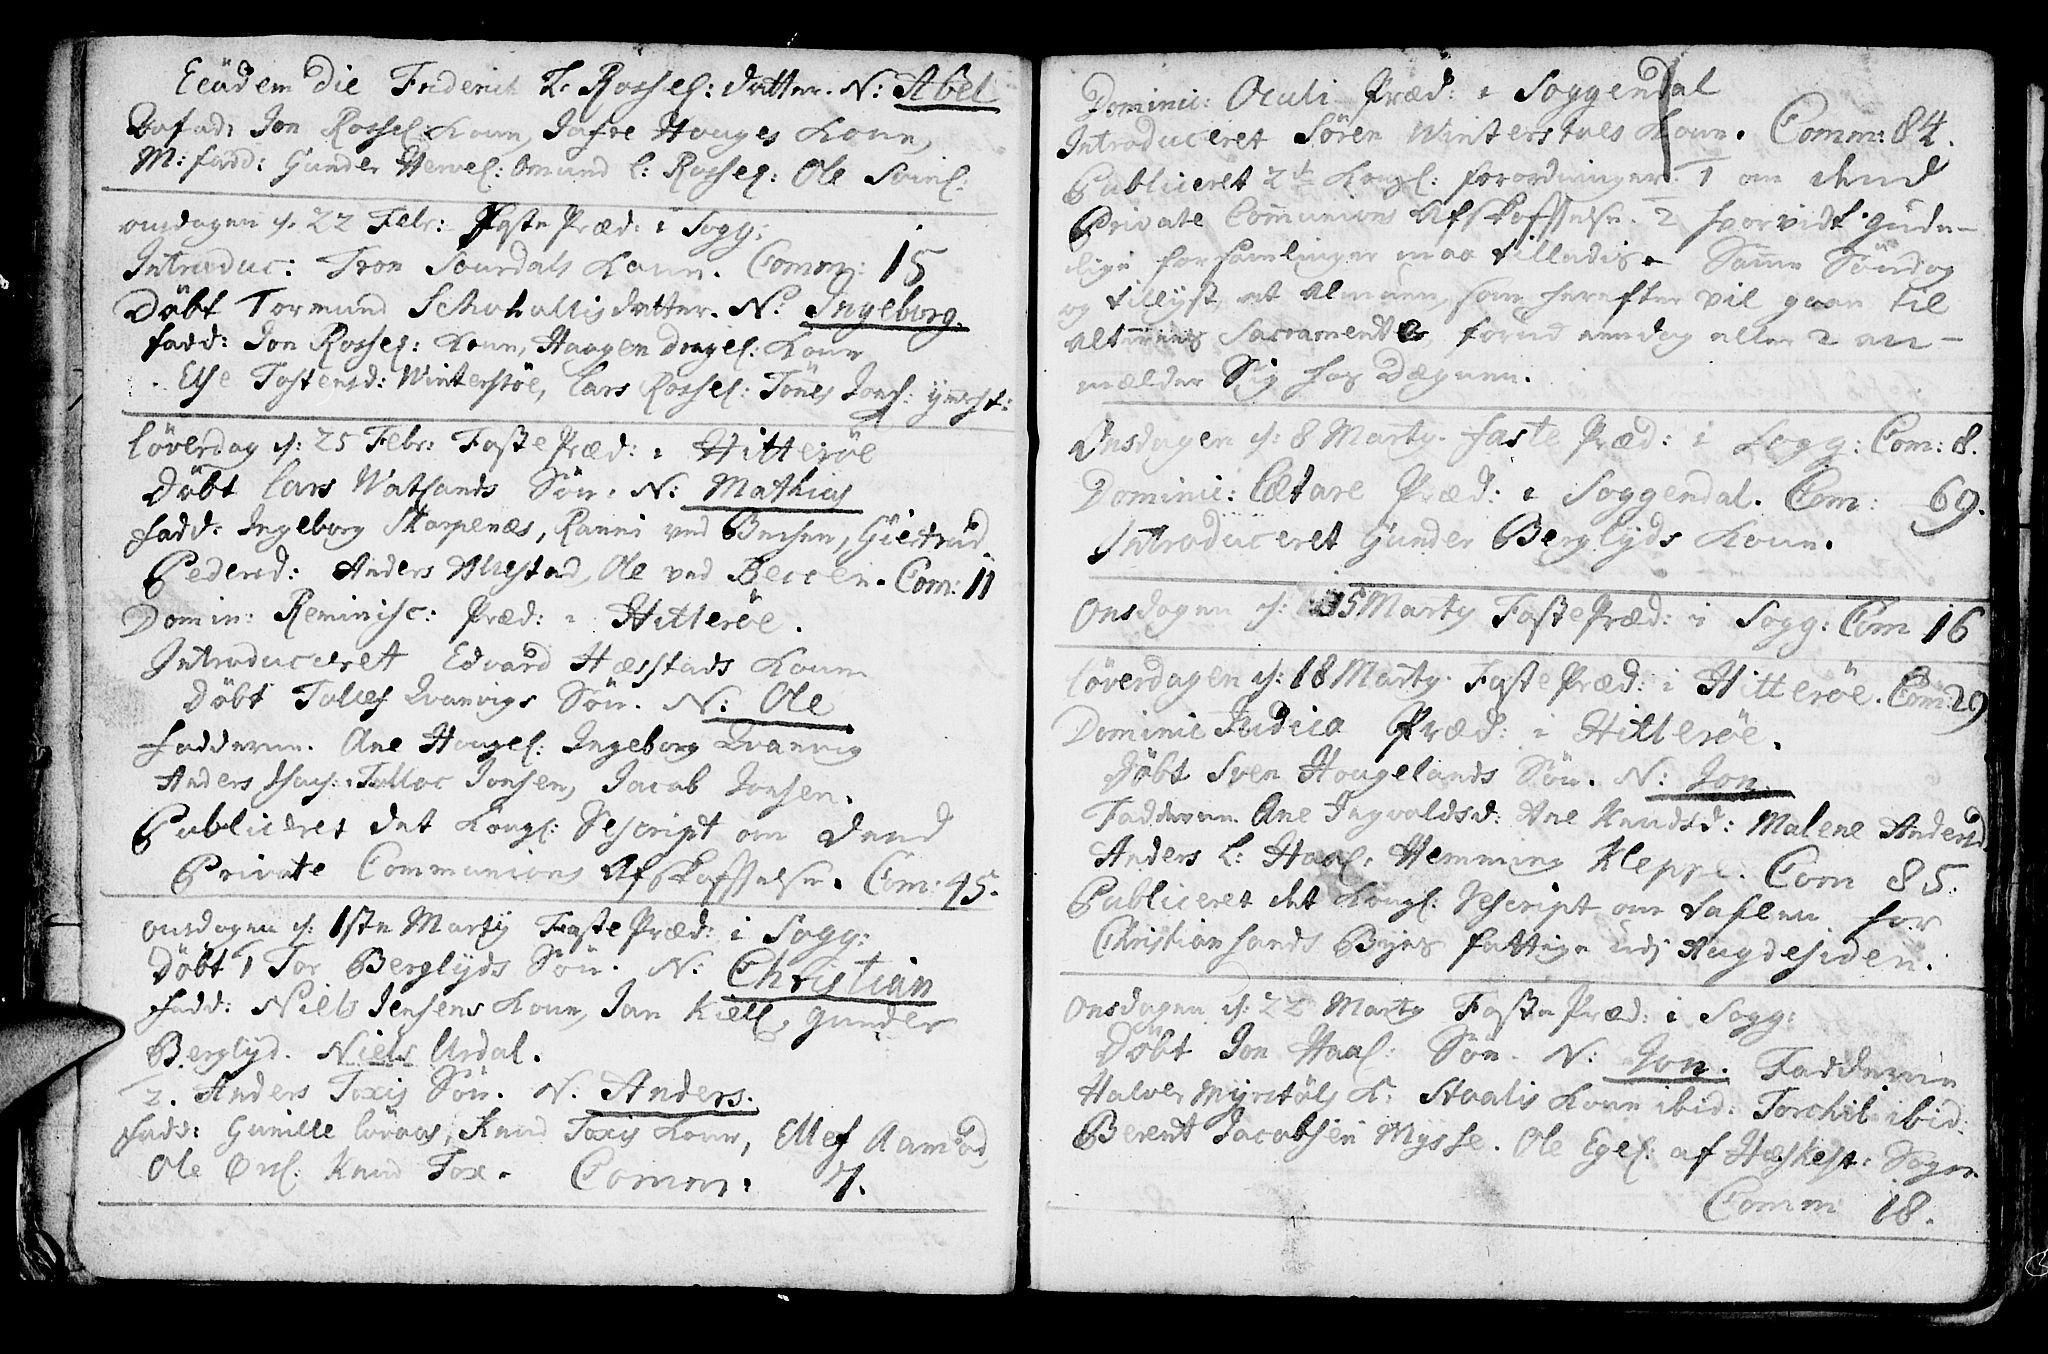 Eeüdem Die Friderich L: Rossel: datter. N: Abel
Jon Rossel: Kone, Hauges Kone,
M: fadd: Gunder Hervel: Omund L: Rossel: Ole
onsdagen d. 22 Febr: Faste Præd: i Sogg:
Introduc: Tron Sourdals Kone. Comm: 15
Döbt Tormund datter. N: Ingeborg.
fadd: Jon Rossel: Kone, Haagen Kone
Else Tostensd: Winterstöe, Lars Rossel: Tönes
Löverdag d: 25 Febr: Faste Præd: i Hitteröe
Döbt Lars Watlands Sön. N: Mathias
fadd: Ingeborg Skarpenæs, Ranni ved Giertrud
Pedersd: Anders Ole ved Becken. Com: 11
Domin: Reminisc: Præd: i Hitteröe.
Introduceret Edvard Hæsstads Kone
Döbt Tolles Qvanvigs Sön. N: Ole
Fadderne. Ane Hougel: Ingeborg Qvanvig
Anders Tolloc Jonsen, Jacob Jonsen.
Publiceret det Kongl: Rescript om dend
Private Communions Afskaffelse. Com: 45.
onsdagen d: 1ste Marty Faste Præd: i Sogg:
Döbt 1 Tor Berglyds Sön. N: Christian
fadd: Niels Jensens Kone, Jan Kiell, gunder
Berglyd. Niels Urdal.
2. Anders Toxis Sön. N: Anders.
fadd: Gunille Löraas, Knud Toxis Kone, Ellef Aamod
Ole Knud Tox. Comm: 7.
Dominic: Oculi Præd: i Soggendal
Introduceret Sören Winterstöes Kone. Comm: 84.
Publiceret 2de Kongl: forordninger. 1 om dend
Private Communions Afskaffelse. 2 hvorvidt gude-
lige forsamlinger maa tilladis. Samme Söndag
og tillyst, at Almuen, som herefter vil gaae til
Altterens Sacramente, forud en dag eller 2 an-
mælder Sig hos Degnen.
Onsdagen d: 8 Marty. Faste Præd: i Sogg: Com: 8.
Dominic: Lætare Præd: i Soggendal. Com: 69.
Introduceret Gunder Berglyds Kone.
Onsdagen d: 15 Marty Faste Præd: i Sogg: Com 16
Löverdagen d: 18 Marty. Faste Præd: i Hitteröe. Com: 29
Dominic Judica Præd: i Hitteröe.
Döbt Sven Hougelands Sön. N: Jon.
Fadderne. Ane Ingvaldsd: Ane Knudsd: Malene Andersd
Anders L: Haal: Hemming Kleppe. Com 85.
Publiceret det Kongl: Rescript om taflen for
Christiansands Byes fattige udj Augdesiden.
Onsdagen d: 22 Marty Faste Præd: i Sogg:
Döbt Jon Haal: Sön. N: Jon. Fadderne
Halvor Myrstöls K: Staalis Kone ibid: Torchil ibid:
Berent Jacobsen Mysse. Ole Egel: af Hæskest: Sogn.
Comm 18.